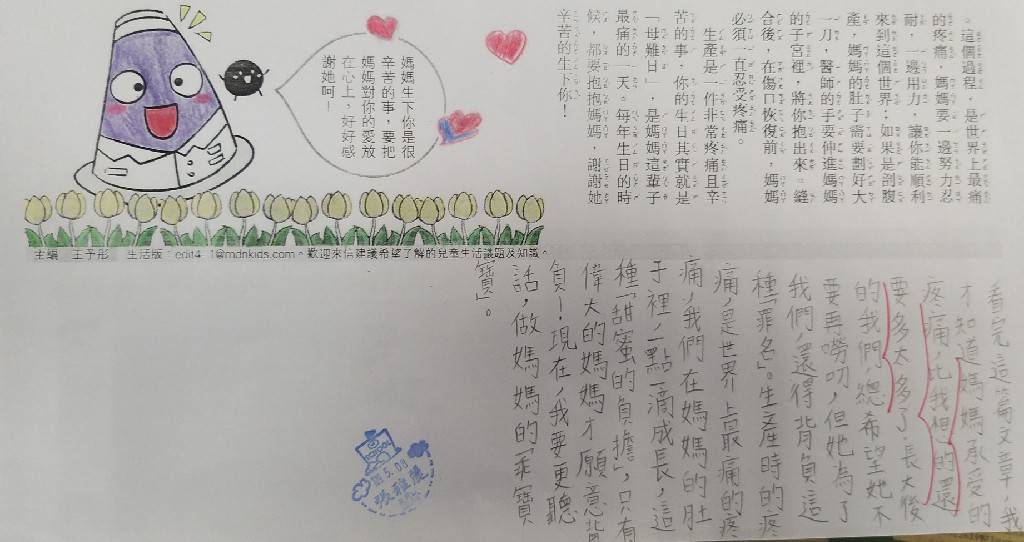 。這個過程，是世界上最痛
的疼痛，媽媽要一邊努力忍
耐，一邊用力，讓你能順利
來到這個世界；如果是剖腹
產，媽媽的肚子需要劃好大
一刀，醫師的手要伸進媽媽
的子宮裡，將你抱出來。縫
合後，在傷口恢復前，媽媽
必須一直忍受疼痛。
生產是一件非常疼痛且辛
苦的事，你的生日其實就是
「母難日」，是媽媽這輩子
最痛的一天。每年生日的時
候，都要抱抱媽媽，謝謝她
辛苦的生下你！
媽媽生下你是很
辛苦的事，要把
媽媽對你的愛放
在心上，好好感
謝她呵！
主編 王予彤 生活版：edit4-1@mdnkids.com。歡迎來信建議希望了解的兒童生活議題及知識。
看完這篇文章，我
才知道媽媽承受的
疼痛，比我想的還
要多太多了。長大後
的我們，總希望她不
要再嘮叨，但她為了
我們，還得背負這
種「罪名」。生產時的疼
痛，是世界上最痛的疼
痛，我們在媽媽的肚
子裡，一點一滴成長，這
種「甜蜜的負擔」，只有
偉大的媽媽才願意背
負！現在，我要更聽
話，做媽媽的「乖寶
寶」。
張雅麗